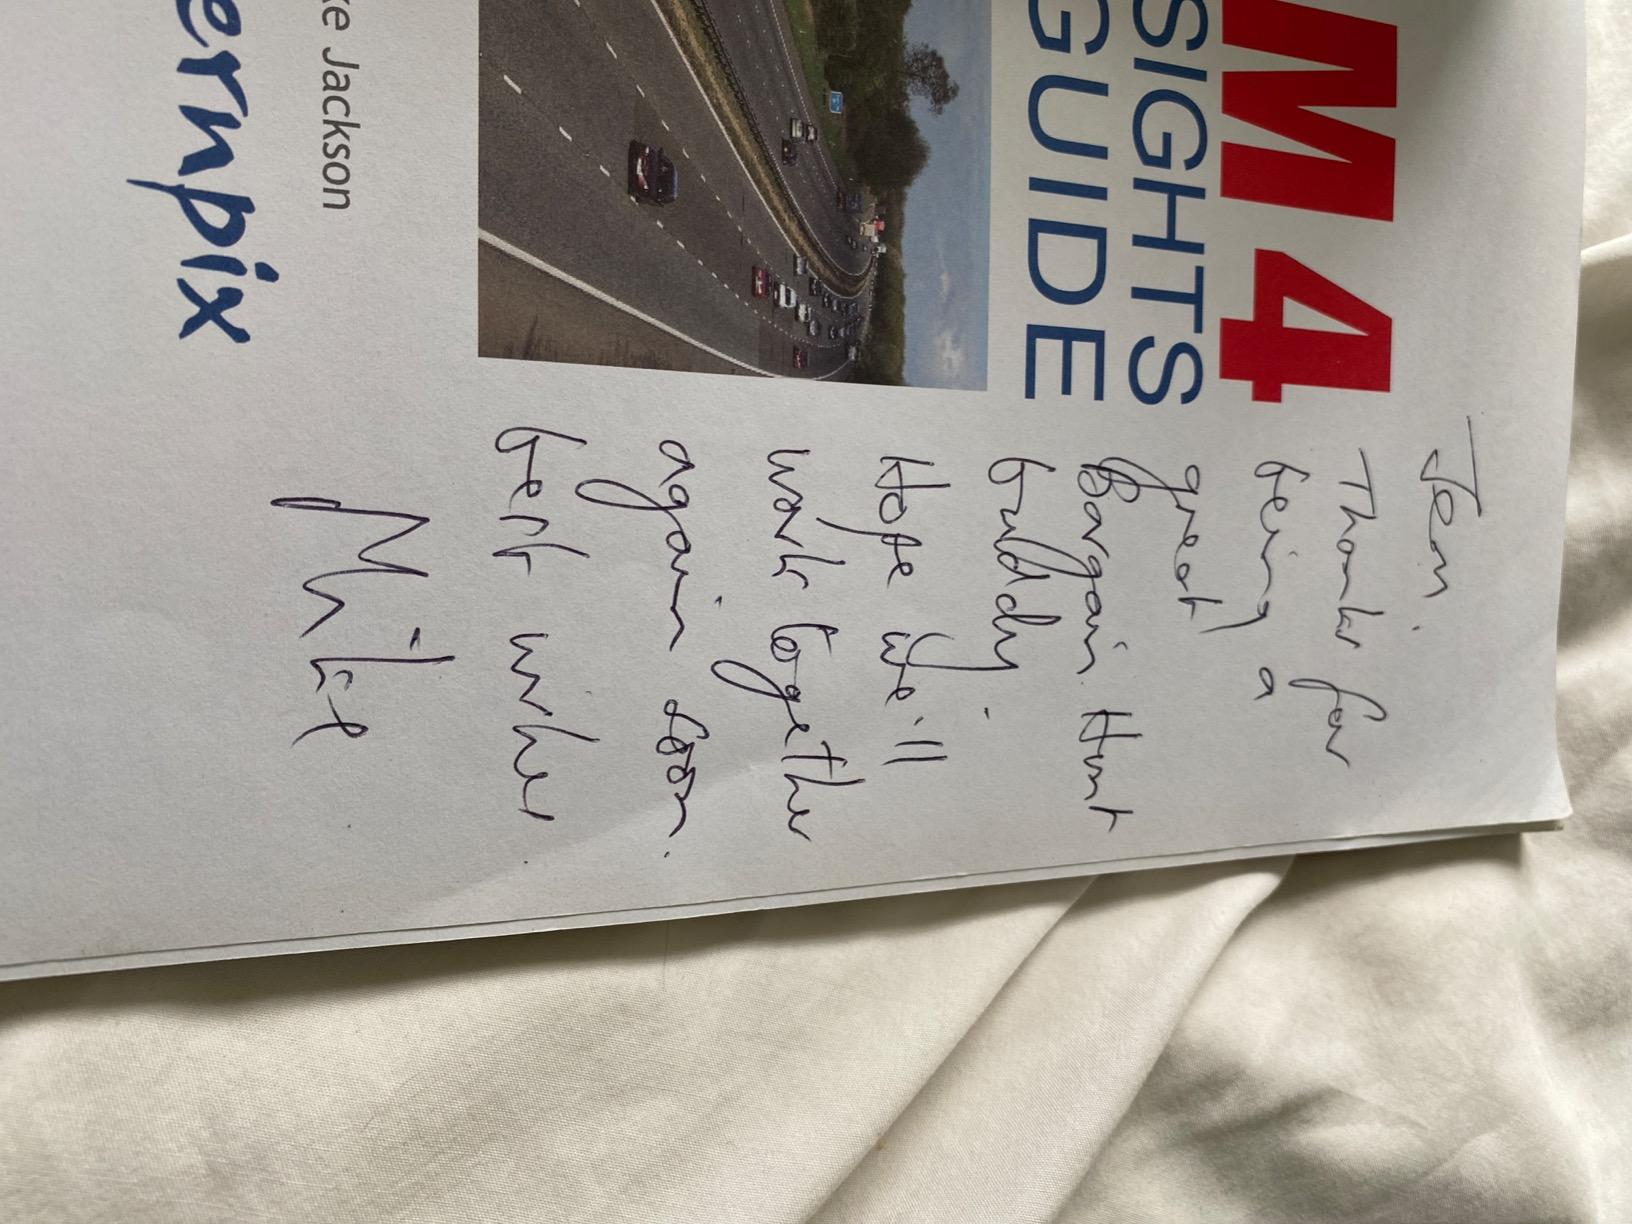 M4
SIGHTS
GUIDE
ke Jackson
ernpix
Jem.
Thanks for
being a
great
Bargain Hunt
buddy
Hope we'll
work together
again soon.
best wishes
Mike